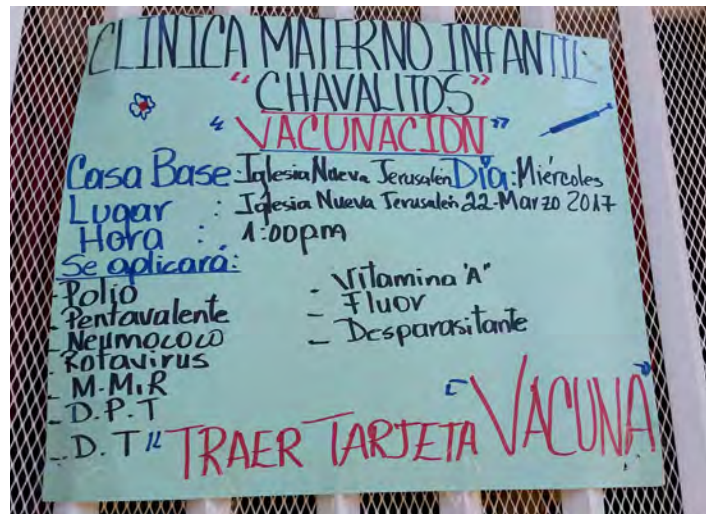 CLINICA MATERNO INFANTIL
"CHAVALITOS"
"VACUNACION"
Casa Base: Iglesia Nueva Jerusalén Día: Miércoles
Lugar : Iglesia Nueva Jerusalén 22-Marzo 2017
Hora : 1:00pm
Se aplicará:
- Polio
- Pentavalente
- Neumococo
- Rotavirus
- M.M.R
- D.P.T
- D.T
- Vitamina "A"
- Fluor
- Desparasitante
"TRAER TARJETA VACUNA"